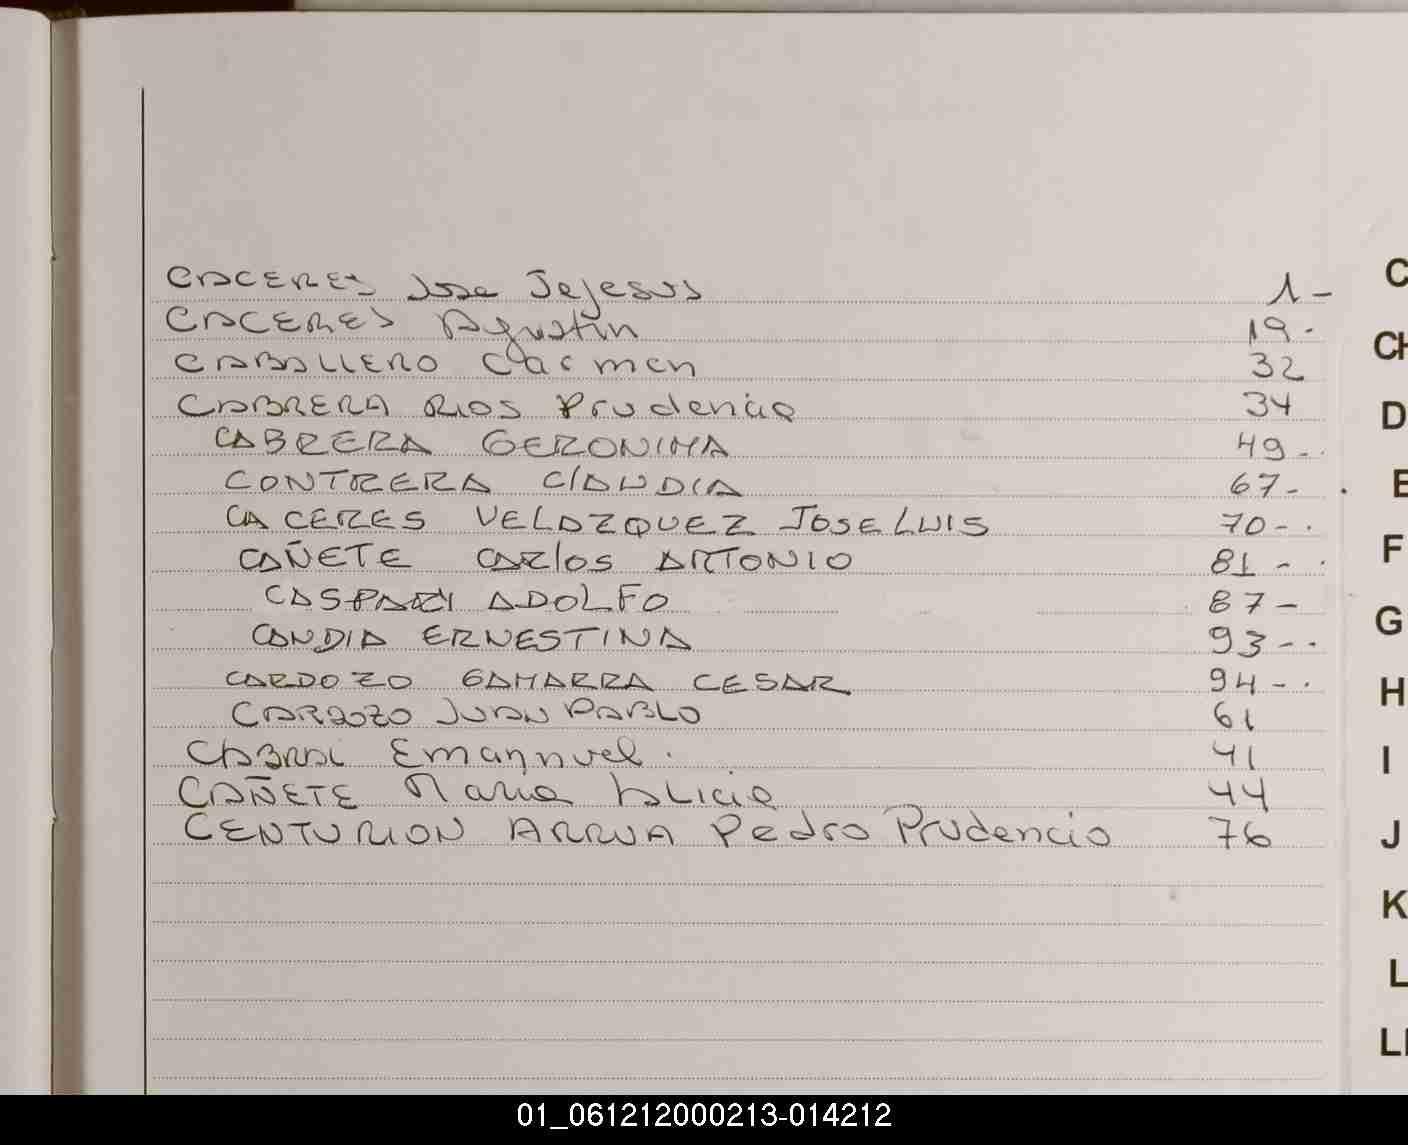 CACERES Jose Jejesus 1-
CACERES Agustin 19.
CABALLERO Carmen 32
CABRERA RIOS Prudencia 34
CABRERA GERONIMA 49-.
CONTRERA ClAUDIA 67-
CACERES VELAZQUEZ JOSE LUIS 70-.
CAÑETE CARlos ANTONIO 81-.
CASPARI ADOLFO 87-
CANDIA ERNESTINA 93-.
CARDOZO GAMARRA CESAR 94-.
CARDOZO JUAN PABLO 61
CABRAL Emannuel. 41
CAÑETE Maria Alicia 44
CENTURION ARRUA Pedro Prudencio 76
C
CH
D
E
F
G
H
I
J
K
L
LL
01_061212000213-014212